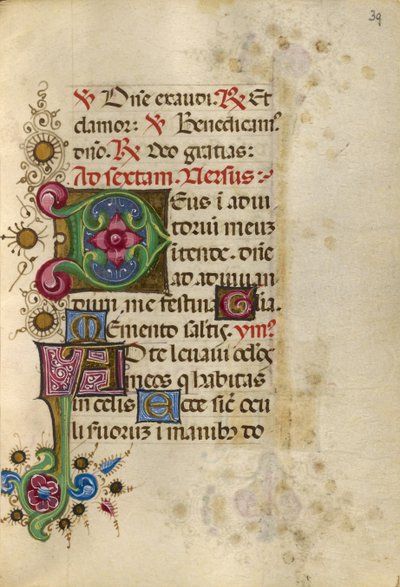 39
℣ Dñe exaudi. ℟ Et
clamor: ℣ Benedicam⁹
dño. ℟ Deo gratias:
Ad sextam. Versus:
DEus ĩ adiu
toriũ meuz
ĩtende. dñe
ad adiuuan
dum me festina Glia.
MEmento saltis. ymꝰ
AD te leuaui oclos
meos q habitas
in celis Ecce sic̃ ocu
li seruoruz ĩ manibꝰ do